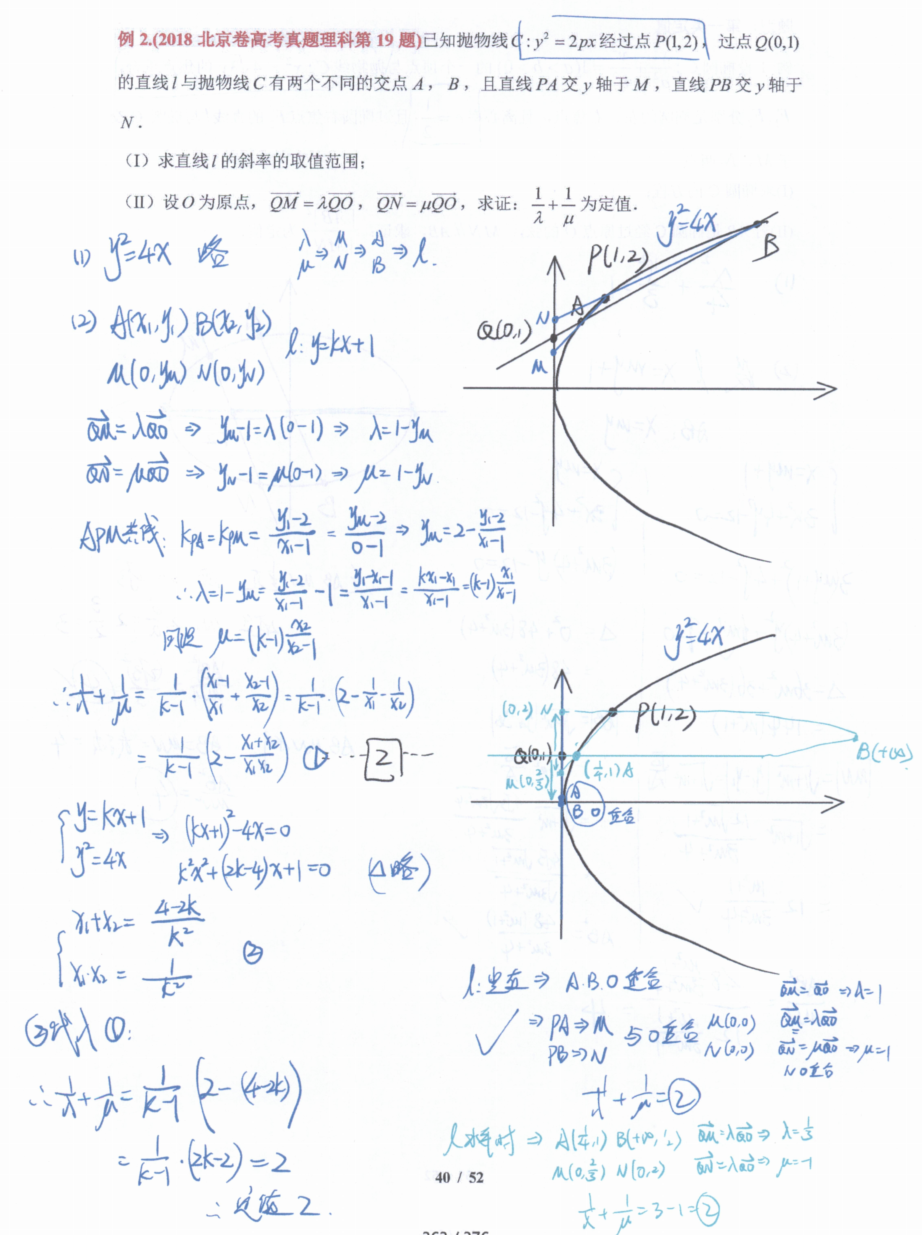 例 2.(2018 北京卷高考真题理科第 19 题)已知抛物线C : y² = 2px 经过点 P(1,2)，过点Q(0,1)
的直线 l 与抛物线 C 有两个不同的交点 A， B，且直线 PA 交 y 轴于 M，直线 PB 交 y 轴于
N．
（I）求直线 l 的斜率的取值范围；
（II）设 O 为原点，QM = λQO，QN = μQO，求证：1/λ + 1/μ 为定值．
(1) y²=4x 略
λ μ ⇒ M N ⇒ A B ⇒ l.
(2) A(x₁,y₁) B(x₂,y₂)
l: y=kx+1
M(0,yM) N(0,yN)
QM=λQO ⇒ yM-1=λ(0-1) ⇒ λ=1-yM
QN=μQO ⇒ yN-1=μ(0-1) ⇒ μ=1-yN
APM共线: kPA=kPM= (y₁-2)/(x₁-1) = (yM-2)/(0-1) ⇒ yM=2-(y₁-2)/(x₁-1)
∴λ=1-yM=(y₁-2)/(x₁-1) -1=(y₁-x₁-1)/(x₁-1)=(kx₁-x₁)/(x₁-1)=(k-1)x₁/(x₁-1)
同理 μ=(k-1)x₂/(x₂-1)
∴1/λ+1/μ=1/(k-1)·((x₁-1)/x₁+(x₂-1)/x₂)=1/(k-1)·(2-1/x₁-1/x₂)
=1/(k-1)(2-(x₁+x₂)/(x₁x₂)) ① ⋯ 2 ⋯
{ y=kx+1
y²=4x
⇒ (kx+1)²-4x=0
k²x²+(2k-4)x+1=0 (Δ略)
{ x₁+x₂= (4-2k)/k²
x₁·x₂= 1/k²
②
②代入①:
∴1/λ+1/μ=1/(k-1)(2-(4-2k))
=1/(k-1)·(2k-2)=2
∴定值 2.
y²=4x
P(1,2)
B
N
A
Q(0,1)
M
y²=4x
(0,2) N
P(1,2)
Q(0,1)
(1/4,1) A
B(+∞)
M(0,2/3)
A
B O 重合
l:竖直 ⇒ A.B.O重合
⇒ PA⇒M
PB⇒N
与O重合
M(0,0)
N(0,0)
QM=QO ⇒λ=1
QM=λQO
QN=μQO ⇒μ=1
N O重合
1/λ+1/μ=②
l水平时 ⇒ A(1/4,1) QM=λQO⇒ λ=1/3
M(0,2/3) N(0,2) QN=λQO⇒ μ=-1
1/λ+1/μ=3-1=②
40 / 52